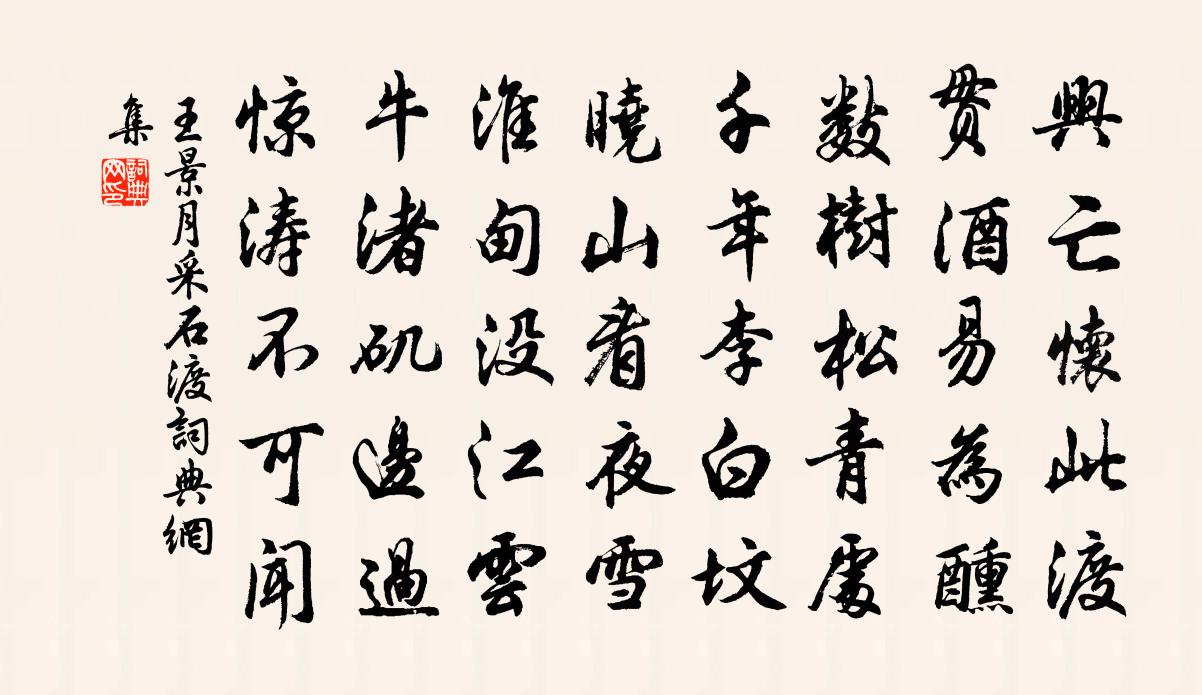 興亡懷此渡
貫酒易為醺
數樹松青處
千年李白坟
曉山看夜雪
淮甸没江雲
牛渚矶邊過
惊涛不可闻
王景月采石渡詞典網
集
詞典網印